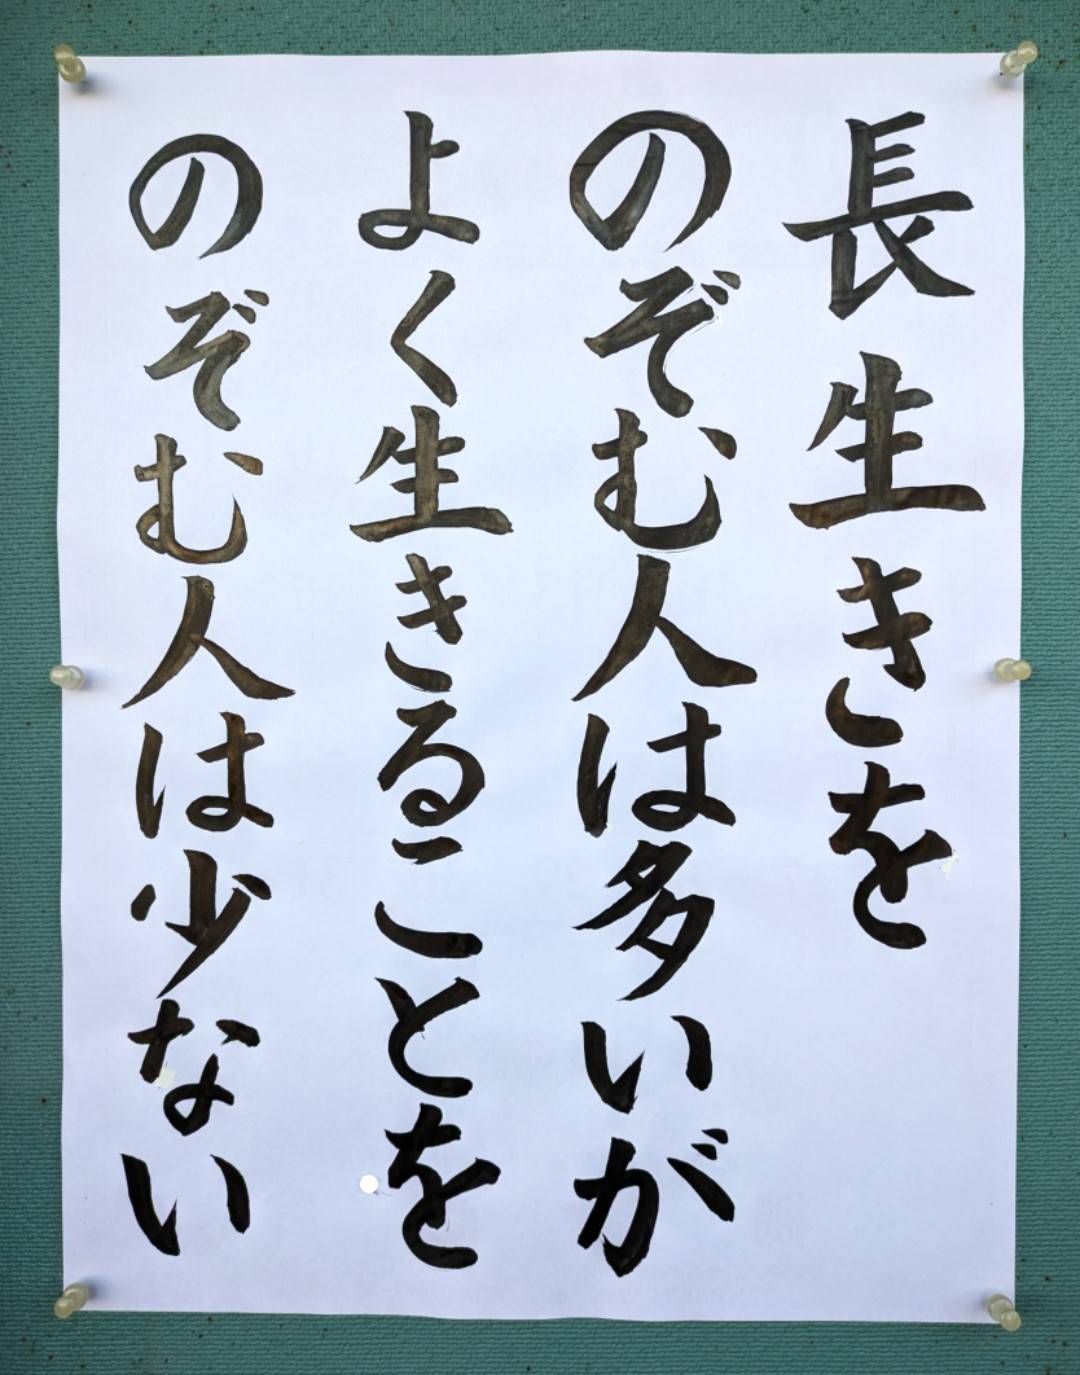 長生きを
のぞむ人は多いが
よく生きることを
のぞむ人は少ない